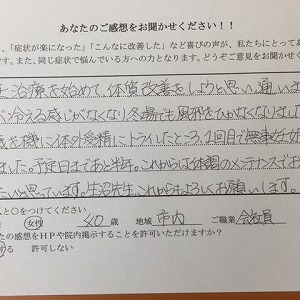 あなたのご感想をお聞かせください!!
、「症状が楽になった」「こんなに改善した」など喜びの声が、私たちにとってあ
す。また、同じ症状で悩んでいる方への力となります。どうぞご意見をお聞かせ
に治療を始めて、体質改善をしようと思い通いま
べ冷える感じがなくなり冬場でも風邪をひかなくなりまし
歳を機に体外受精にトライしたところ、1回目で無事妊娠
ました。予定日まであと半年。これからは体調のメンテナンスでお
たいと思っています。生沼先生、これからもよろしくお願いします。
と○をつけてください
女性 40 歳 地域 市内 ご職業 会社員
たの感想をHPや院内掲示することを許可いただけますか?
する 許可しない